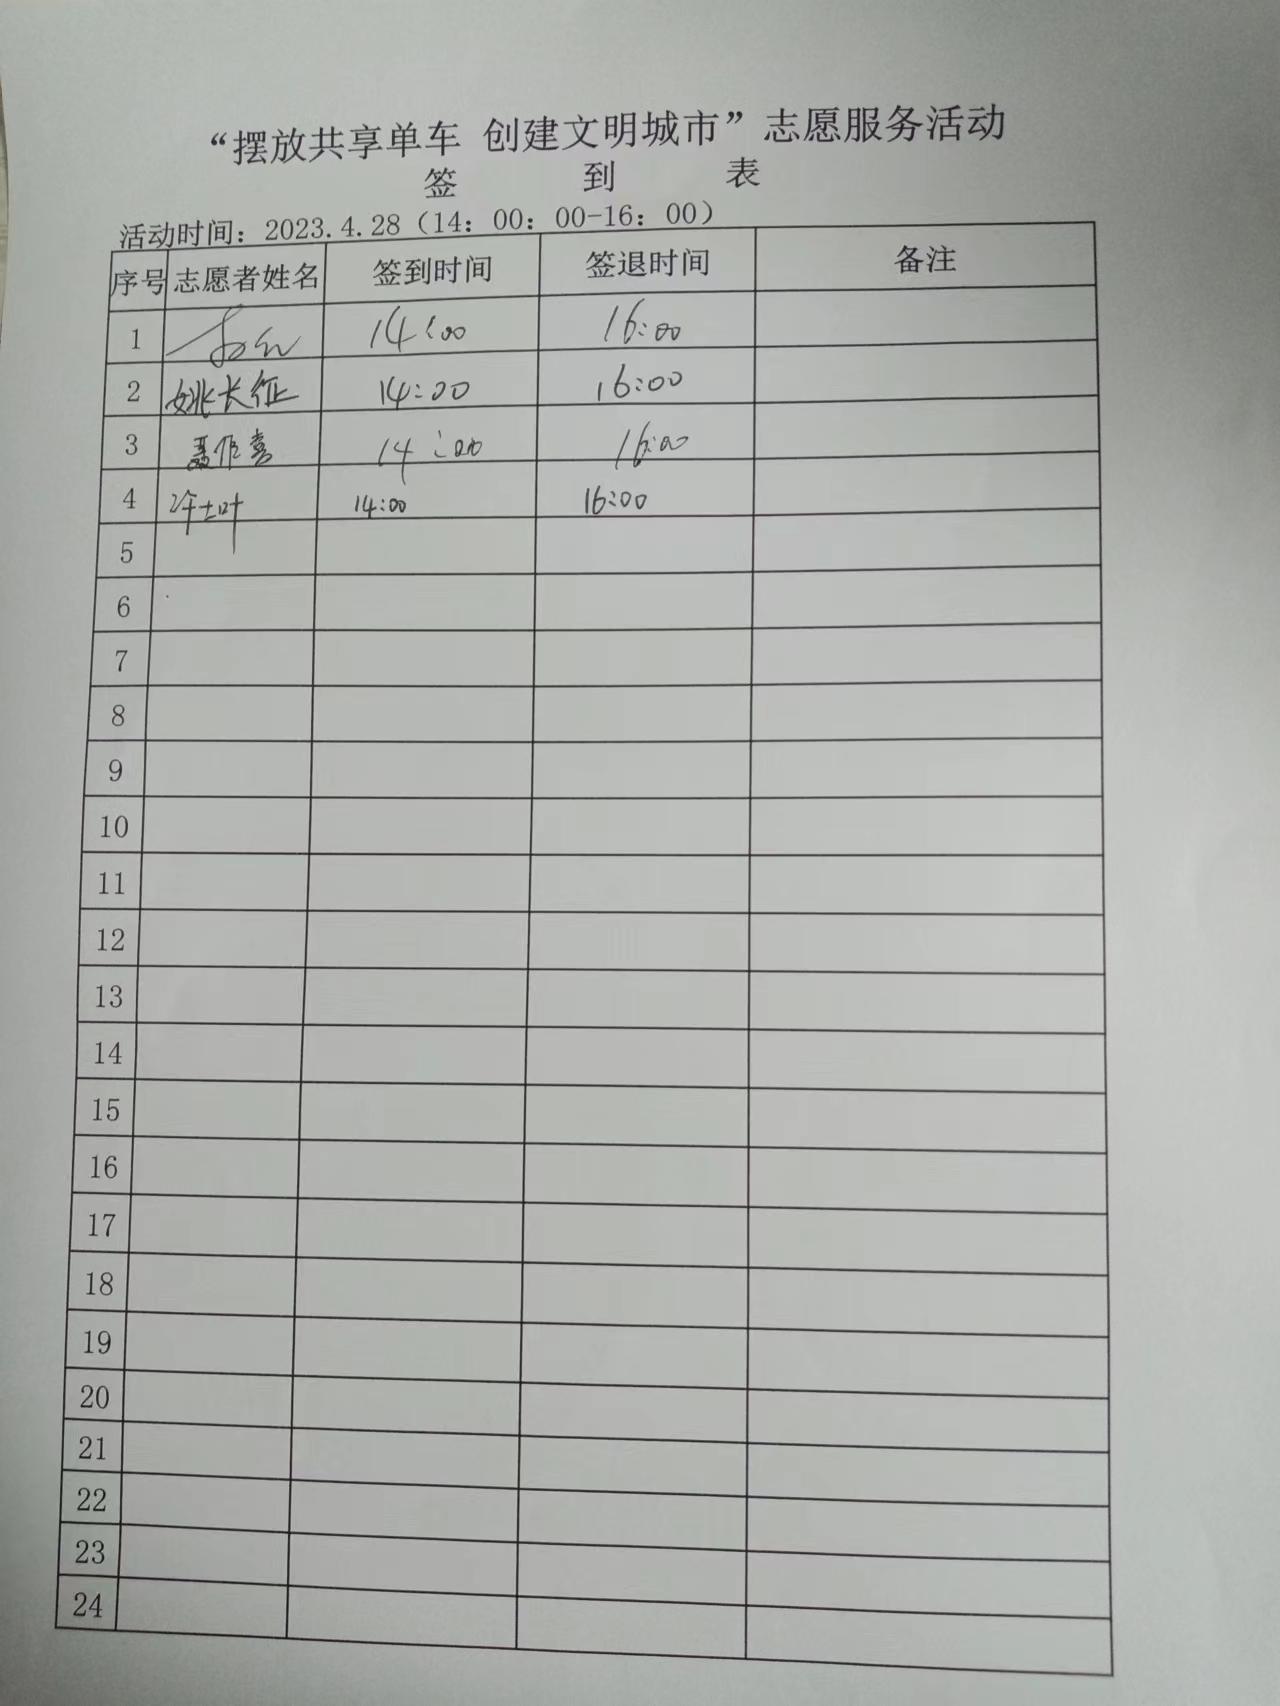 “摆放共享单车 创建文明城市”志愿服务活动
签 到 表
活动时间：2023.4.28（14：00：00-16：00）
序号 志愿者姓名 签到时间 签退时间 备注
1 14:00 16:00
2 姚长征 14:00 16:00
3 14:00 16:00
4 14:00 16:00
5
6
7
8
9
10
11
12
13
14
15
16
17
18
19
20
21
22
23
24